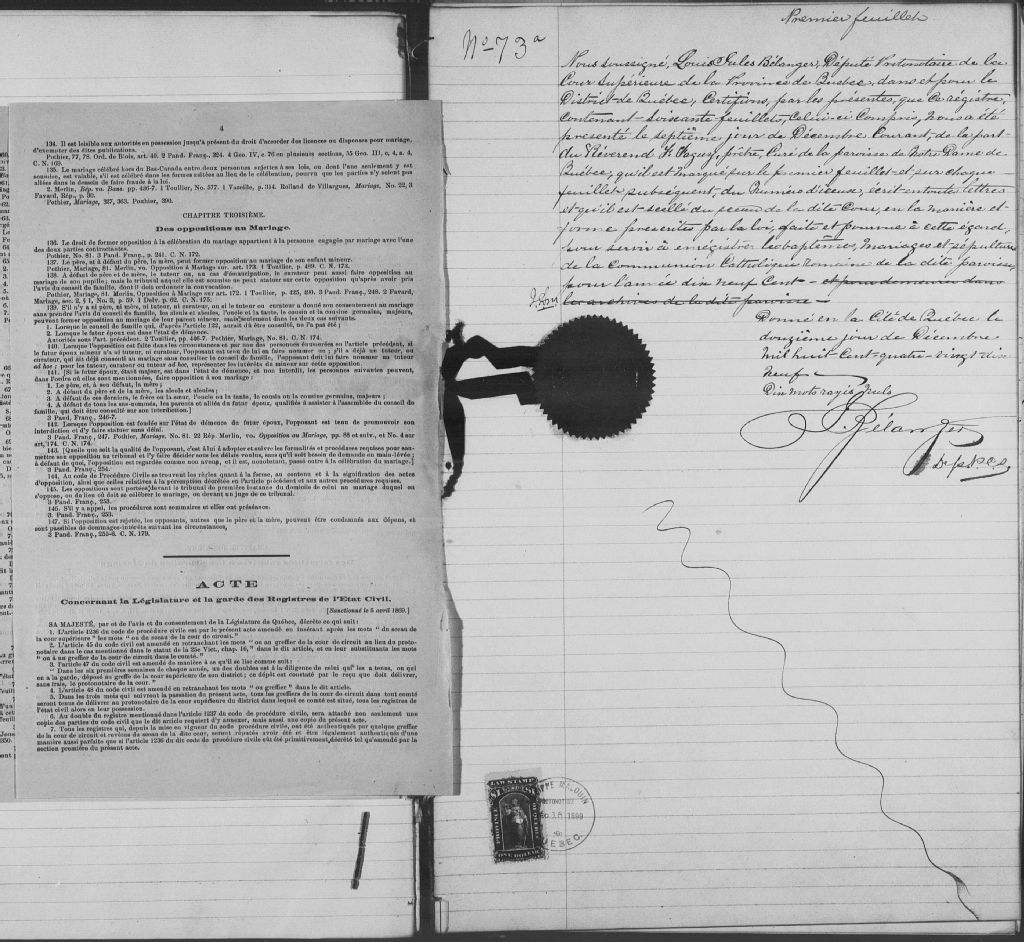 4
134. Il est loisible aux autorités en possession jusqu'à présent du droit d'accorder des licences ou dispenses pour mariage,
d'exempter des dites publications.
Pothier, 77, 78. Ord. de Blois, art. 40. 2 Pand. Franç., 324. 4 Geo. IV, c. 76 en plusieurs sections, 35 Geo. III, c. 4, s. 4,
C. N. 169.
135. Le mariage célébré hors du Bas-Canada entre deux personnes sujettes à ses lois, ou dont l'une seulement y est
soumise, est valable, s'il est célébré dans les formes usitées au lieu de la célébration, pourvu que les parties n'y soient pas
allées dans le dessein de faire fraude à la loi.
2. Merlin, Rép. vo. Bans. pp. 436-7. 1 Toullier, No. 577. 1 Vazeille, p. 314. Rolland de Villargues, Mariage, No. 22, 3
Favard, Rép. p. 30.
Pothier, Mariage, 327, 363. Pouhier, 390.
CHAPITRE TROISIÈME.
Des oppositions au Mariage.
136. Le droit de former opposition à la célébration du mariage appartient à la personne engagée par mariage avec l'une
des deux parties contractantes.
Pothier, No. 81. 3 Pand. Franç., p. 241. C. N. 172.
137. Le père, et à défaut du père, la mère, peut former opposition au mariage de son enfant mineur.
Pothier, Mariage, 81. Merlin, vo. Opposition à Mariage sur. art. 173. 1 Toullier, p. 489. C. N. 173.
138. A défaut de père et de mère, le tuteur ou, au cas d'émancipation, le curateur peut aussi faire opposition au
mariage de son pupille; mais le tribunal auquel elle est soumise ne peut statuer sur cette opposition qu'après avoir pris
l'avis du conseil de famille, dont il doit ordonner la convocation.
Pothier, Mariage, 81. Merlin, vo. Opposition à Mariage sur art. 172. 1 Toullier, p. 325, 490. 3 Pand. Franç., 249. 2 Favard,
Mariage, sec. 2, § 1, No. 3, p. 59. 1 Delv. p. 62. C. N. 175.
139. S'il n'y a ni père, ni mère, ni tuteur, ni curateur, ou si le tuteur ou curateur a donné son consentement au mariage
sans prendre l'avis du conseil de famille, les aïeuls et aïeules, l'oncle et la tante, le cousin et la cousine germains, majeurs,
peuvent former opposition au mariage de leur parent mineur, mais seulement dans les deux cas suivants.
1. Lorsque le conseil de famille qui, d'après l'article 122, aurait dû être consulté, ne l'a pas été;
2. Lorsque le futur époux est dans l'état de démence.
Autorités sous l'art. précédent. 2 Toullier, pp. 436-7. Pothier, Mariage, No. 81. C. N. 174.
140. Lorsque l'opposition est faite dans les circonstances et par une des personnes énumérées en l'article précédent, si
le futur époux mineur n'a ni tuteur, ni curateur, l'opposant est tenu de lui en faire nommer un; s'il a déjà un tuteur, ou
curateur, qui ait déjà consenti au mariage sans consulter le conseil de famille, l'opposant doit lui faire nommer un tuteur
ad hoc; pour les tuteur, curateur ou tuteur ad hoc, représenter les intérêts du mineur sur cette opposition.
141. [Si le futur époux, étant majeur, est dans l'état de démence, et non interdit, les personnes suivantes peuvent,
dans l'ordre où elles sont mentionnées, faire opposition à son mariage:
1. Le père, et, à son défaut, la mère;
2. A défaut du père et de la mère, les aïeuls et aïeules;
3. A défaut de ces derniers, le frère ou la sœur, l'oncle ou la tante, le cousin ou la cousine germains, majeurs;
4. A défaut de tous les sus-nommés, les parents et alliés du futur époux, qualifiés à assister à l'assemblée du conseil de
famille, qui doit être consulté sur son interdiction.]
3 Pand. Franç., 246-7.
142. Lorsque l'opposition est fondée sur l'état de démence du futur époux, l'opposant est tenu de promouvoir son
interdiction et d'y faire statuer sans délai.
3 Pand. Franç., 247. Pothier, Mariage. No. 81. 22 Rép. Merlin, vo. Opposition au Mariage, pp. 88 et suiv., et No. 4 sur
art. 174. C. N. 174.
143. [Quelle que soit la qualité de l'opposant, c'est à lui à adopter et suivre les formalités et procédures requises pour sou-
mettre son opposition au tribunal et l'y faire décider sous les délais voulus, sans qu'il soit besoin de demande en main-levée;
à défaut de quoi, l'opposition est regardée comme non avenue, et il est, nonobstant, passé outre à la célébration du mariage.]
3 Pand. Franç., 254.
144. Au code de Procédure Civile se trouvent les règles quant à la forme, au contenu et à la signification des actes
d'opposition, ainsi que celles relatives à la péremption décrétée en l'article précédent et aux autres procédures requises.
145. Les oppositions sont portées devant le tribunal de première instance du domicile de celui au mariage duquel on
s'oppose, ou du lieu où doit se célébrer le mariage, ou devant un juge de ce tribunal.
3 Pand. Franç., 253.
146. S'il y a appel, les procédures sont sommaires et elles ont préséance.
3. Pand. Franç., 253.
147. Si l'opposition est rejetée, les opposants, autres que le père et la mère, peuvent être condamnés aux dépens, et
sont passibles de dommages-intérêts suivant les circonstances.
3 Pand. Franç., 255-6. C. N. 179.
ACTE
Concernant la Législature et la garde des Registres de l'Etat Civil.
[Sanctionné le 5 avril 1869.]
SA MAJESTÉ, par et de l'avis et du consentement de la Législature de Québec, décrète ce qui suit:
1. L'article 1236 du code de procédure civile est par le présent acte amendé en insérant après les mots "du sceau de
la cour supérieure" les mots "ou du sceau de la cour de circuit."
2. L'article 45 du code civil est amendé en retranchant les mots "ou au greffier de la cour de circuit au lieu du proto-
notaire dans le cas mentionné dans le statut de la 25e Vict., chap. 16," dans le dit article, et en leur substituant les mots
"ou à un greffier de la cour de circuit dans le comté."
3. l'article 47 du code civil est amendé de manière à ce qu'il se lise comme suit:
"Dans les six premières semaines de chaque année, un des doubles est à la diligence de celui qui les a tenus, ou qui
en a la garde, déposé au greffe de la cour supérieure de son district; ce dépôt est constaté par le reçu que doit délivrer,
sans frais, le protonotaire de la cour."
4. L'article 48 du code civil est amendé en retranchant les mots "ou greffier" dans le dit article.
5. Dans les trois mois qui suivront la passation du présent acte, tous les greffiers de la cour de circuit dans tout comté
seront tenus de délivrer au protonotaire de la cour supérieure du district dans lequel ce comté est situé, tous les registres de
l'état civil alors en leur possession.
6. Au double du registre mentionné dans l'article 1237 du code de procédure civile, sera attaché non seulement une
copie des parties du code civil que le dit article requiert d'y annexer, mais aussi une copie du présent acte.
7. Tous les registres qui, depuis la mise en vigueur du code de procédure civile, ont été authentiqués par quelque greffier
de la cour de circuit et revêtus du sceau de la dite cour, seront réputés avoir été et être légalement authentiqués d'une
manière aussi parfaite que si l'article 1236 du dit code de procédure civile eût été primitivement décrété tel qu'amendé par la
section première du présent acte.
Premier feuillet
No 73a
Nous soussigné, Louis Jules Bélanger, Député Protonotaire de la
Cour Supérieure de la Province de Québec, dans et pour le
District de Québec, Certifions, par les présentes, que ce régistre,
contenant soixante feuillets, celui-ci compris, nous a été
présenté le septième jour de Décembre Courant, de la part
du Révérend F. Faguy, prêtre, Curé de la paroisse de Notre Dame de
Québec, qu'il est marqué sur le premier feuillet et sur chaque
feuillet subséquent, du numéro d'iceux, écrit en toutes lettres
et qu'il est scellé du sceau de la dite Cour, en la manière et
forme prescrites par la loi, faite et pourvue à cette égard,
pour servir à enrégistrer les baptêmes, mariages et sépultures
de la Communion Catholique Romaine de la dite paroisse,
pour l'année dix neuf Cent - et pour demeurer dans
les archives de la dite paroisse -
Donné en la Cité de Québec le
douzième jour de Décembre
Mil huit Cent quatre-vingt dix
neuf -
Dix mots rayés nuls
J. Bélanger
Dep. P.C.S.
LAW STAMP
PROVINCE OF QUEBEC
$1
ONE DOLLAR
MALOUIN
1899
QUEBEC.